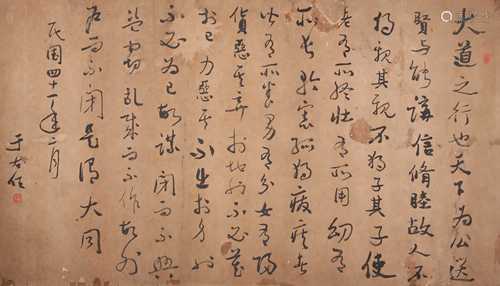 大道之行也天下為公选
賢与能講信脩睦故人不
獨親其親不獨子其子使
老有所終壯有所用幼有
所長矜寡孤獨癈疾者
皆有所養男有分女有歸
貨惡其棄於地也不必藏
於己力惡其不出於身也
不必為己故謀閉而不興
盜竊亂賊而不作故外
户而不閉是謂大同
民国四十一年二月
于右任